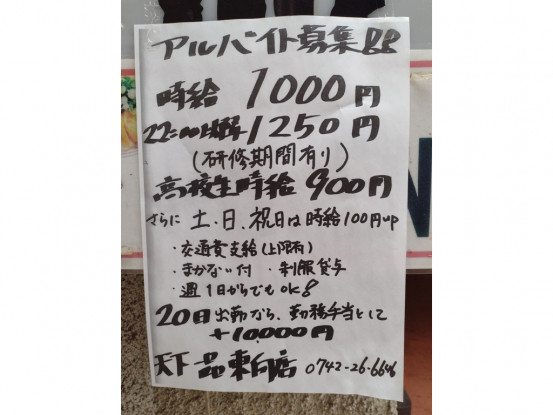 アルバイト募集!!
時給 1000円
22:00以降 1250円
(研修期間有り)
高校生時給 900円
さらに 土、日、祝日は時給100円up
・交通費支給(上限有)
・まかない付 ・制服貸与
・週1日からでもOK!
20日出勤なら、勤務手当として
+10,000円
天下一品東向店 0742-26-6646
N